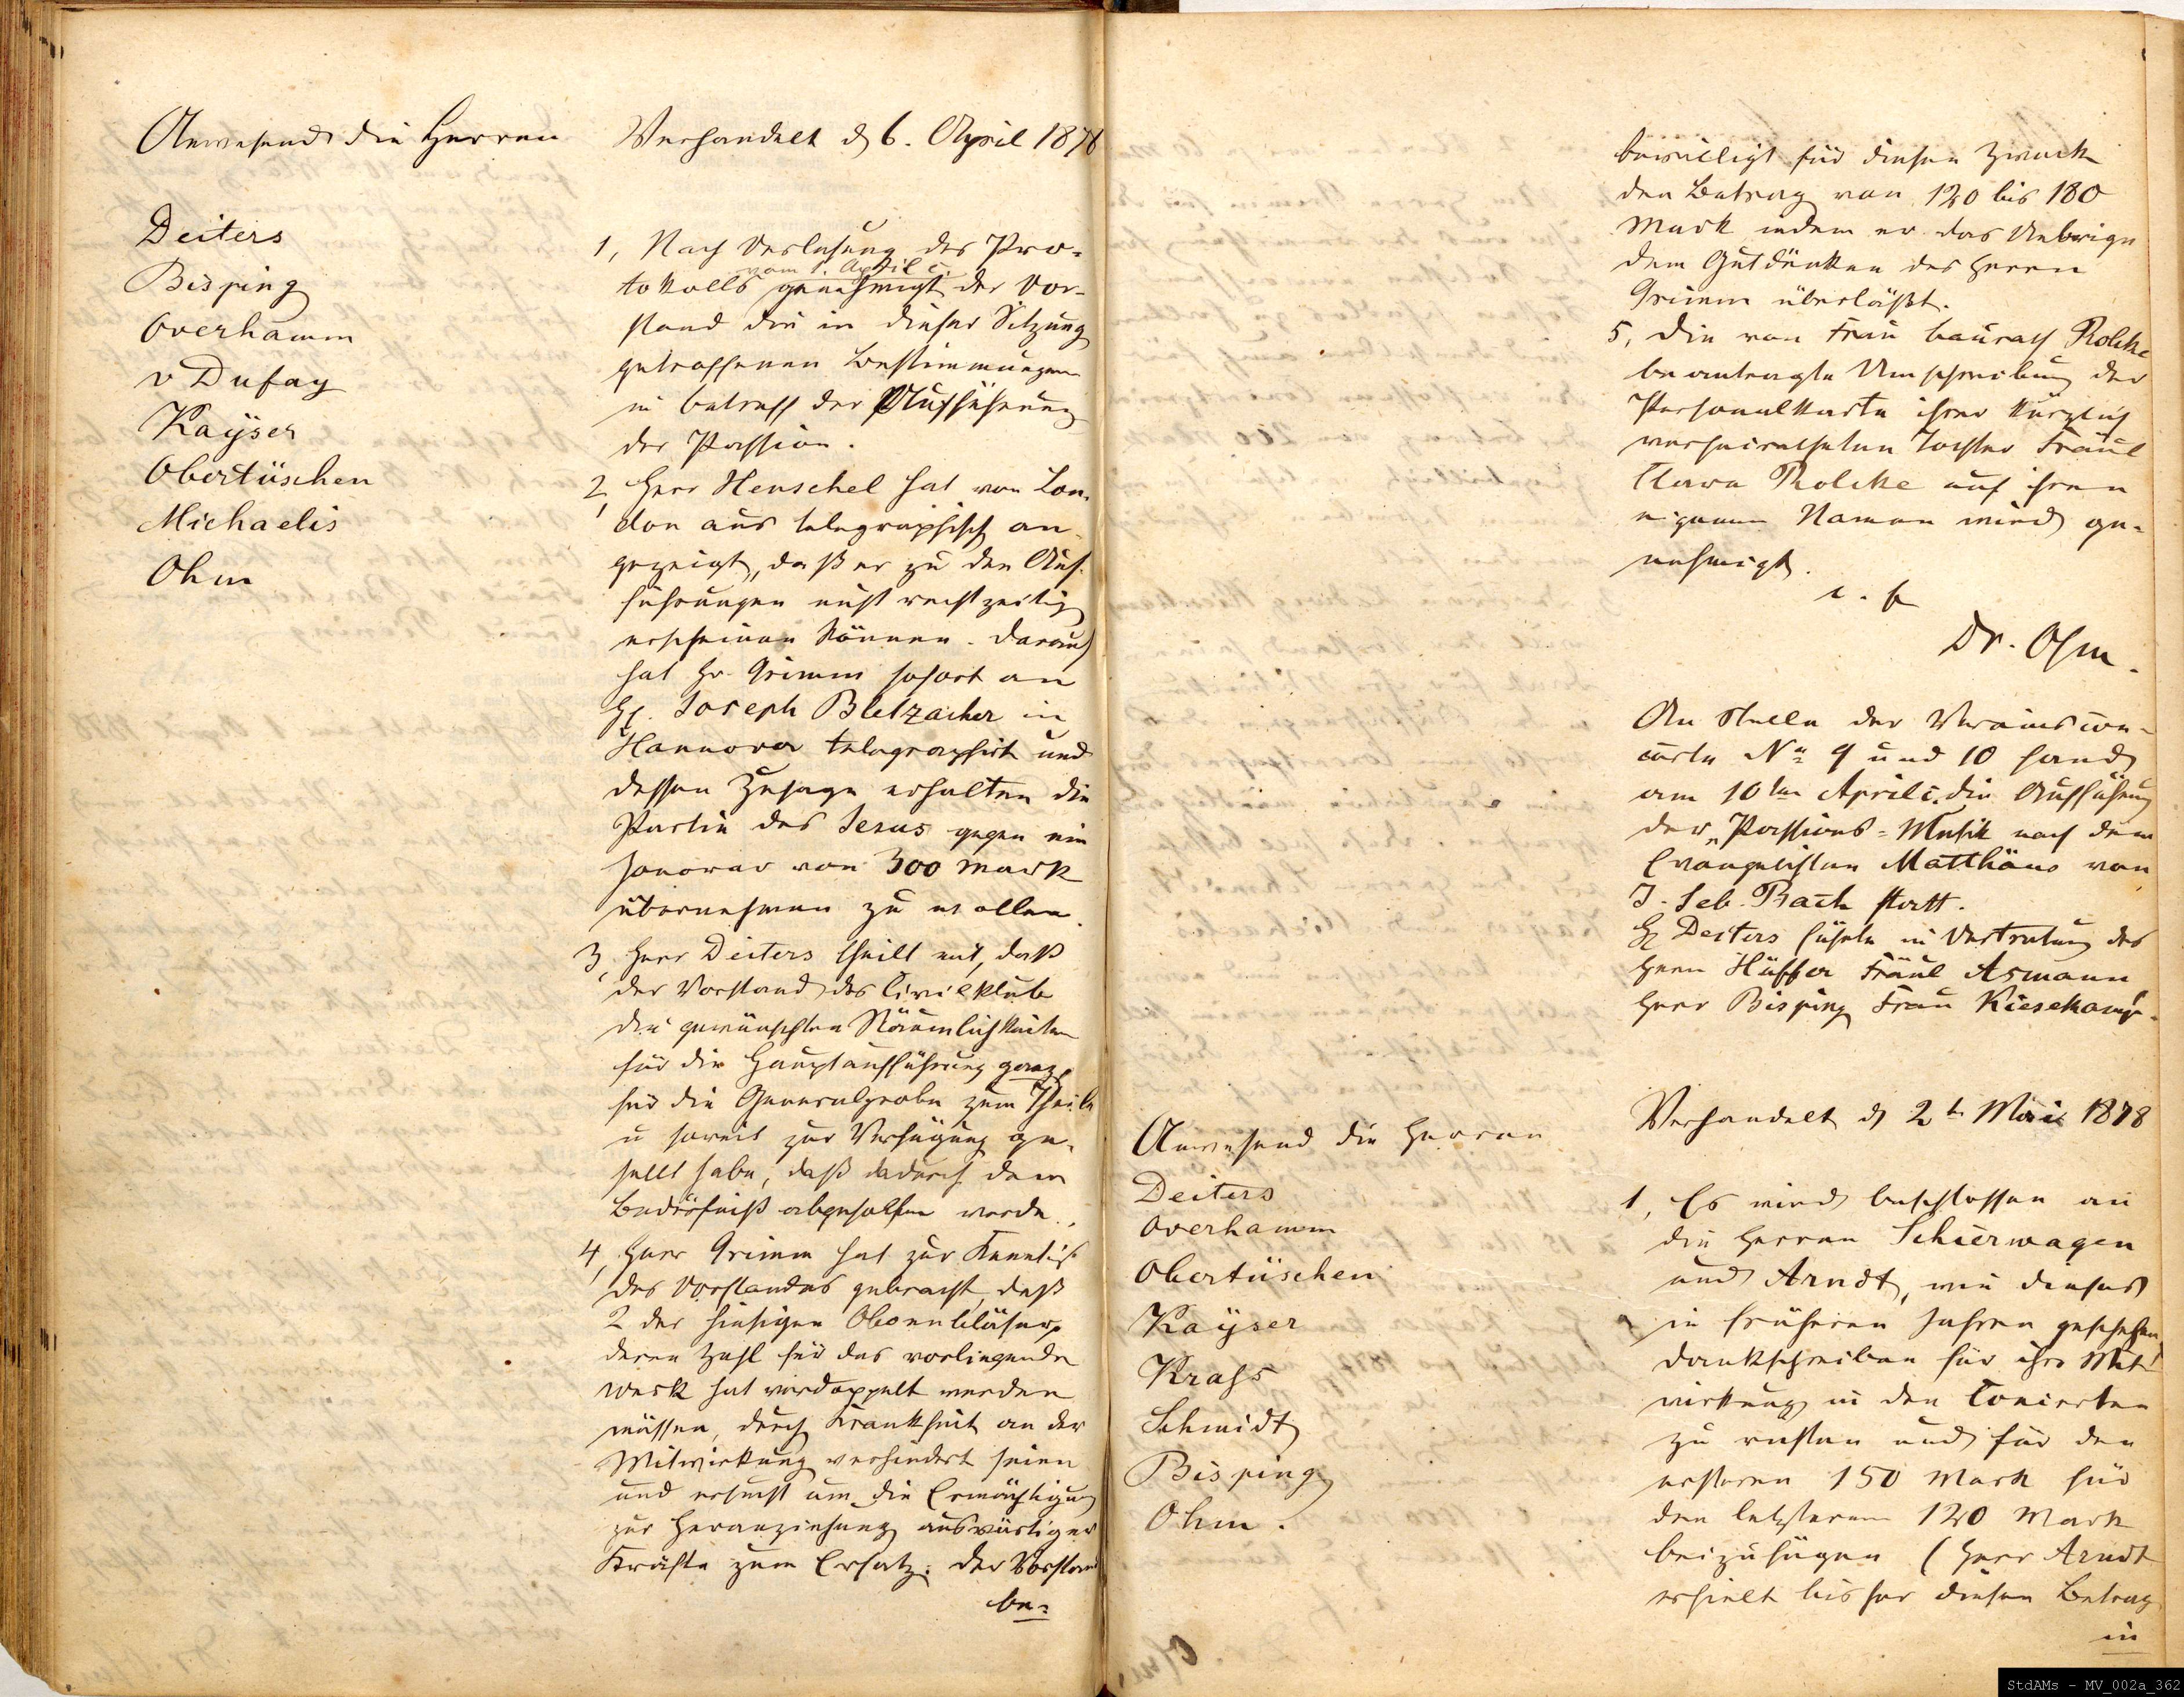 Anwesend die Herren
Deiters
Bisping
Overhamm
v Dufay
Kayser
Obertüschen
Michaelis
Ohm
Verhandelt d 6. April 1878
1, Nach Verlesung des Pro-
tokolls vom 1. April c. genehmigt der Vor-
stand die in dieser Sitzung
getroffenen Bestimmungen
in betreff der Aufführung
der Passion.
2, Herr Henschel hat von Lon-
don aus telegraphisch an-
gezeigt, daß er zu den Auf-
führungen nicht rechtzeitig
erscheinen könne. Darauf
hat Hr. Grimm sofort an
H. Joseph Bletzacher in
Hannover telegraphirt und
dessen Zusage erhalten die
Partie des Jesus gegen ein
Honorar von 300 Mark
übernehmen zu wollen.
3, Herr Deiters theilt mit, daß
der Vorstand des Civilklub
die gewünschten Räumlichkeiten
für die Hauptaufführung ganz,
für die Generalprobe zum Theile
u soweit zur Verfügung ge-
stellt habe, daß dadurch dem
Bedürfniß abgeholfen werde.
4, Herr Grimm hat zur Kenntniß
des Vorstandes gebracht, daß
2 der hiesigen Oboenbläser,
deren Zahl für das vorliegende
Werk hat verdoppelt werden
müssen, durch Krankheit an der
Mitwirkung verhindert seien
und ersucht um die Ermächtigung
zur Heranziehung auswärtiger
Kräfte zum Ersatz. Der Vorstand
be-
bewilligt für diesen Zweck
den Betrag von 120 bis 180
Mark indem er das Uebrige
dem Gutdünken des Herrn
Grimm überläßt.
5, Die von Frau Baurath Rolcke
beantragte Umschreibung der
Personalkarte ihrer kürzlich
verheiratheten Tochter Fräul
Clara Rolcke auf ihren
eigenen Namen wird ge-
nehmigt.
Dr. Ohm.
An Stelle der Vereinscon-
certe No 9 und 10 fand
am 10ten April c. die Aufführung
der "Passions-Musik nach dem
Evangelisten Matthäus von
J. Seb. Bach statt.
H Deiters führte in Vertretung des
Herrn Hüffer Fräul Asmann
Herr Bisping Frau Kiesekamp.
Anwesend die Herren
Deiters
Overhamm
Obertüschen
Kayser
Krass
Schmidt
Bisping
Ohm.
Verhandelt d 2t Mai 1878
1, Es wird beschlossen an
die Herren Schierwagen
und Arndt, wie dieses
in früheren Jahren geschehen
Dankschreiben für ihre Mit-
wirkung in den Concerten
zu richten und für den
ersteren 150 Mark für
den letzteren 120 Mark
beizufügen (Herr Arndt
erhielt bisher diesen Betrag
in
StdAMs - MV_002a_362